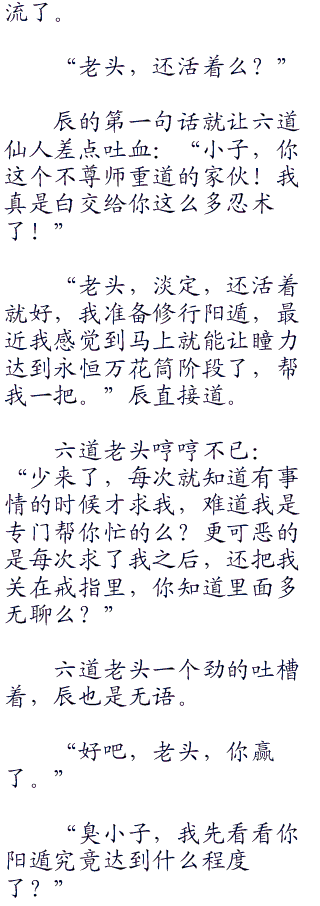 流了。
“老头，还活着么？”
辰的第一句话就让六道
仙人差点吐血：“小子，你
这个不尊师重道的家伙！我
真是白交给你这么多忍术
了！”
“老头，淡定，还活着
就好，我准备修行阳遁，最
近我感觉到马上就能让瞳力
达到永恒万花筒阶段了，帮
我一把。”辰直接道。
六道老头哼哼不已：
“少来了，每次就知道有事
情的时候才求我，难道我是
专门帮你忙的么？更可恶的
是每次求了我之后，还把我
关在戒指里，你知道里面多
无聊么？”
六道老头一个劲的吐槽
着，辰也是无语。
“好吧，老头，你赢
了。”
“臭小子，我先看看你
阳遁究竟达到什么程度
了？”